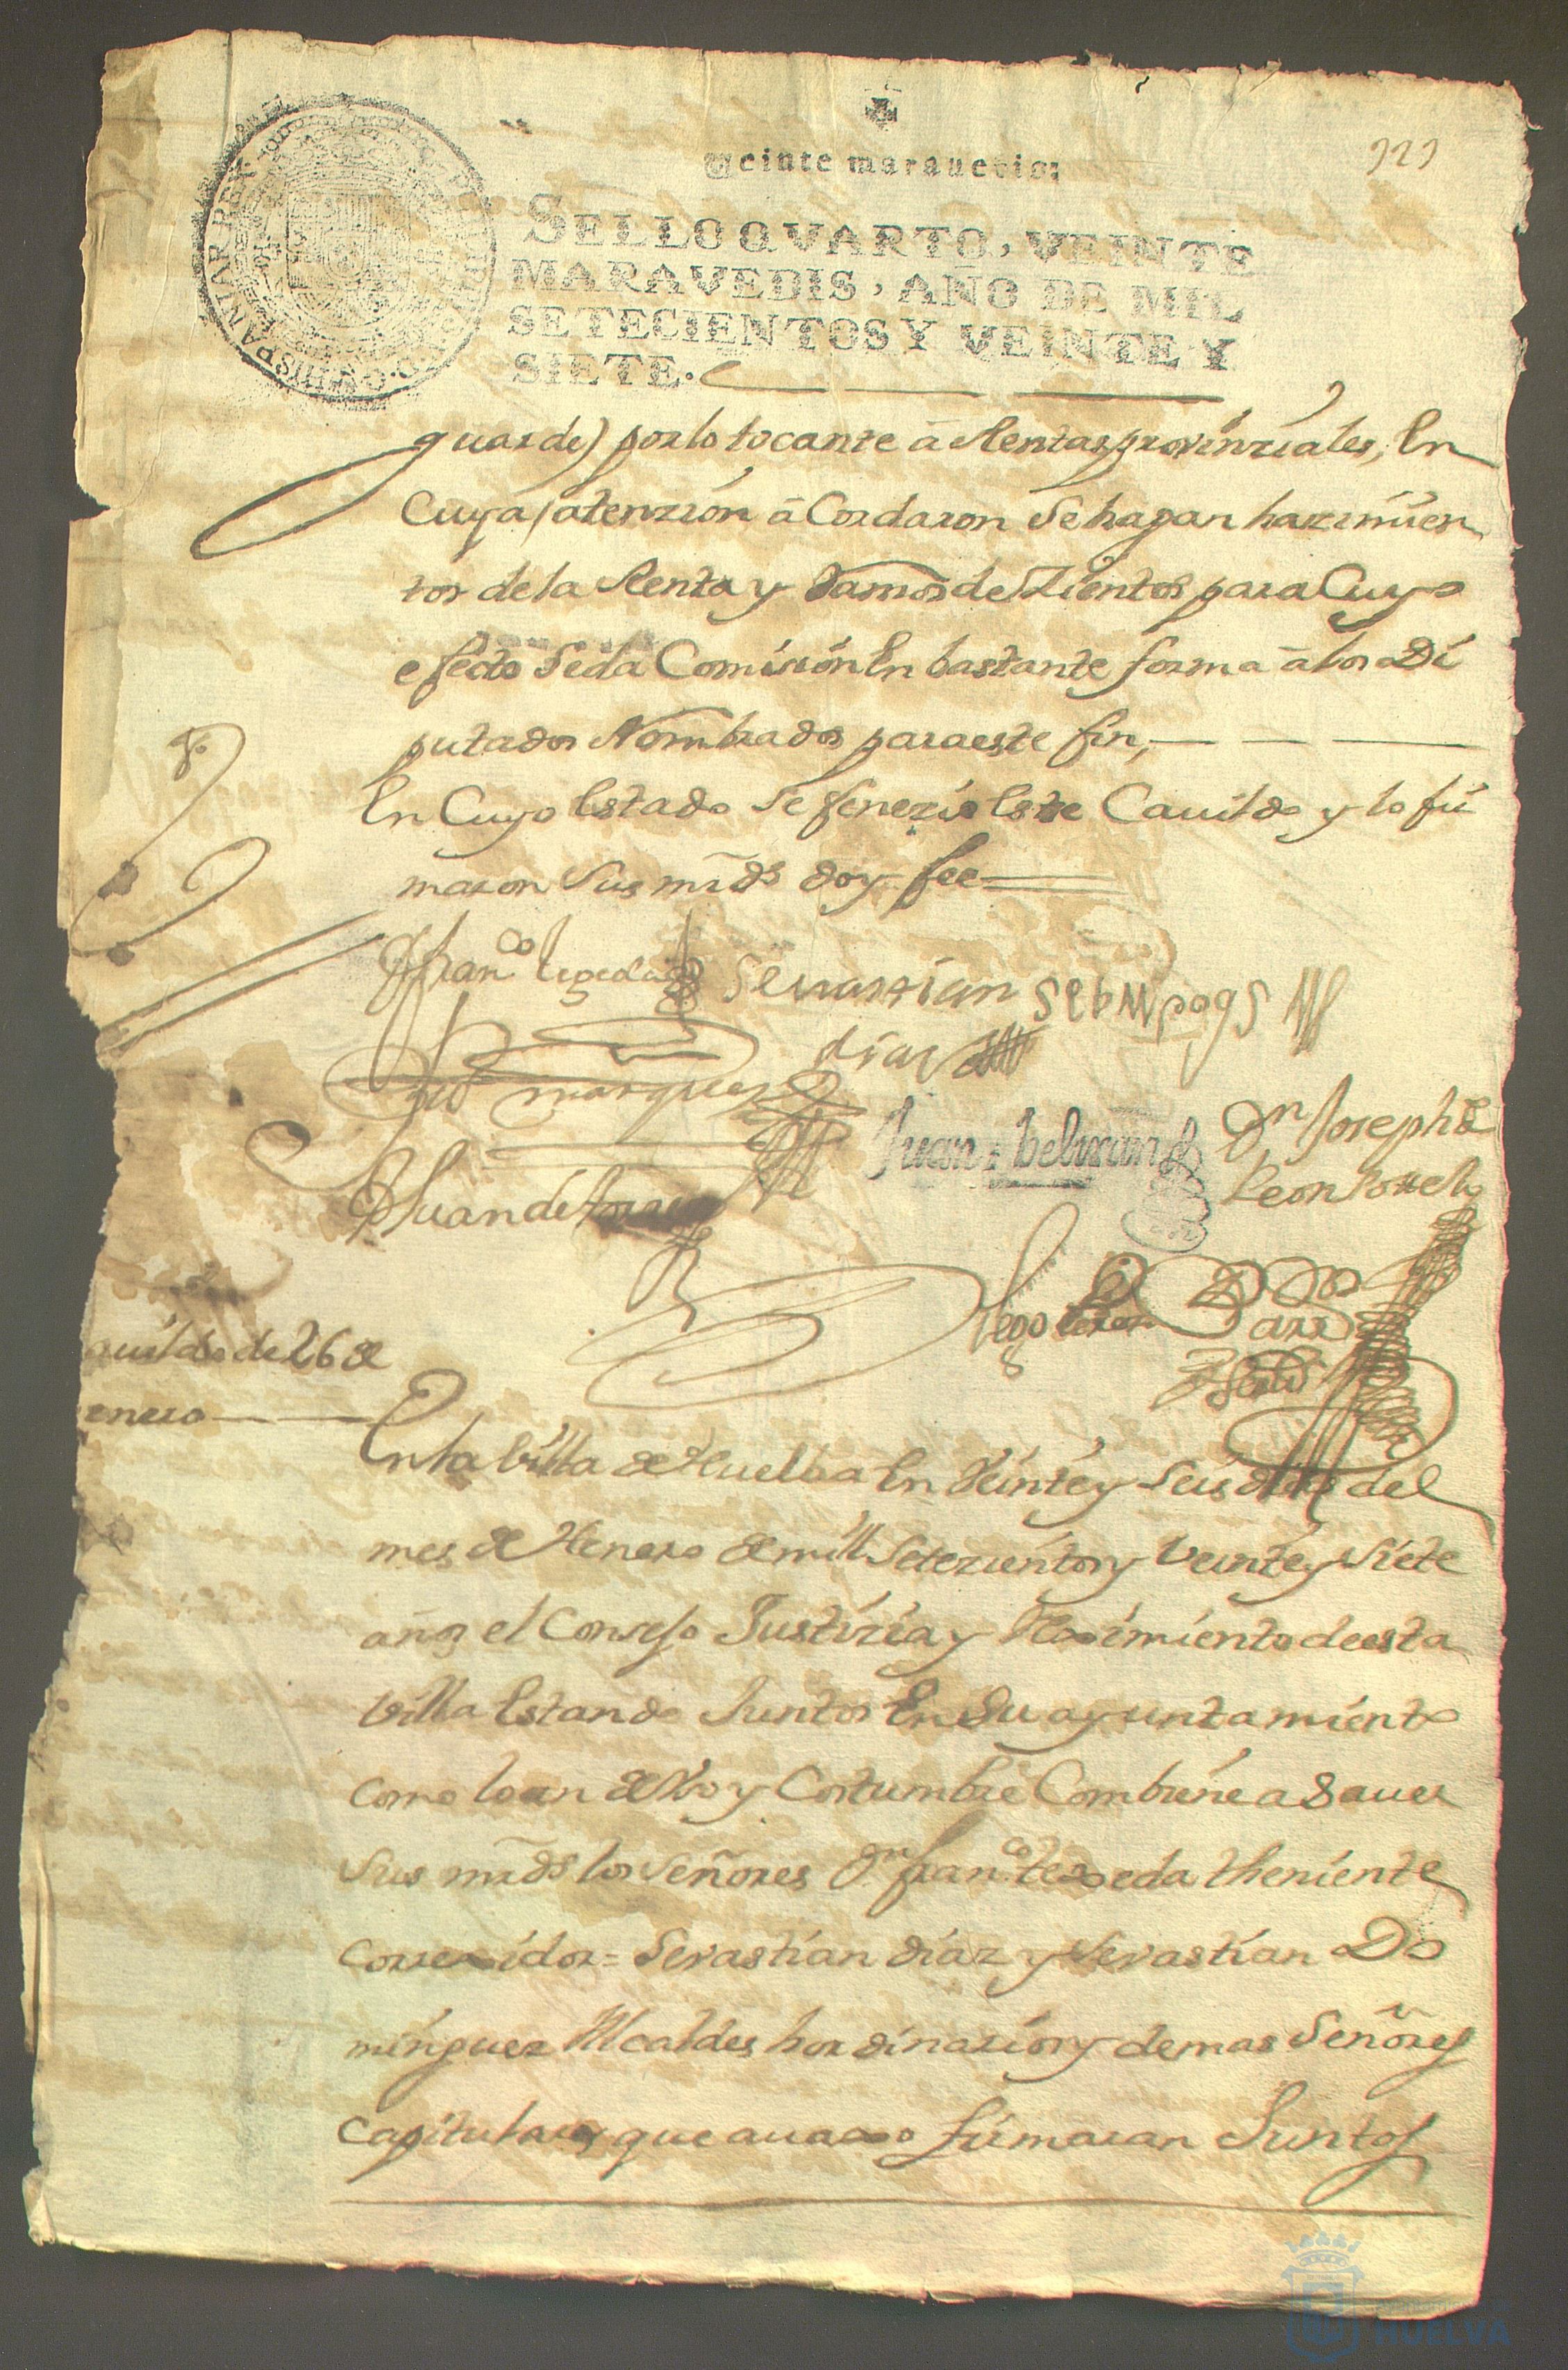 Veinte marauedis;
323
SELLO QVARTO, VEINTE
MARAVEDIS, AÑO DE MIL
SETECIENTOS Y VEINTE Y
SIETE.
HISPANIAR REX
guarde) por lo tocante â Rentas provinziales, En
Cuya atenzion âCordaron Se hagan hazimien
tos de la Renta y Ramos de Zientos para Cuyo
efecto Se da Comision En bastante forma â los Di
putados Nombrados para este fin,
En Cuyo Estado Se fenezio Este Cauildo y lo fir
maron Sus mrds doy fee
Franco tegeda
Sevastian
dias
marquez
Juan beltran
Dn Joseph de
Leon
Juan de torres
Diego
auildo de 26 de
enero
En la Villa de Huelba En Veinte y Seis dias del
mes de Henero de mill Setezientos y Veinte y Siete
años el Consejo Justizia y Reximiento de esta
Villa Estando Juntos En Su ayuntamiento
como lo an de Vso y Costumbre Combiene a Sauer
Sus mrds los Señores Dn Franco texeda theniente
correxidor = Sevastian diaz y Sevastian Do
minguez Alcaldes hordinarios y demas Señores
capitulares que auaxo firmaran Juntos
HUELVA